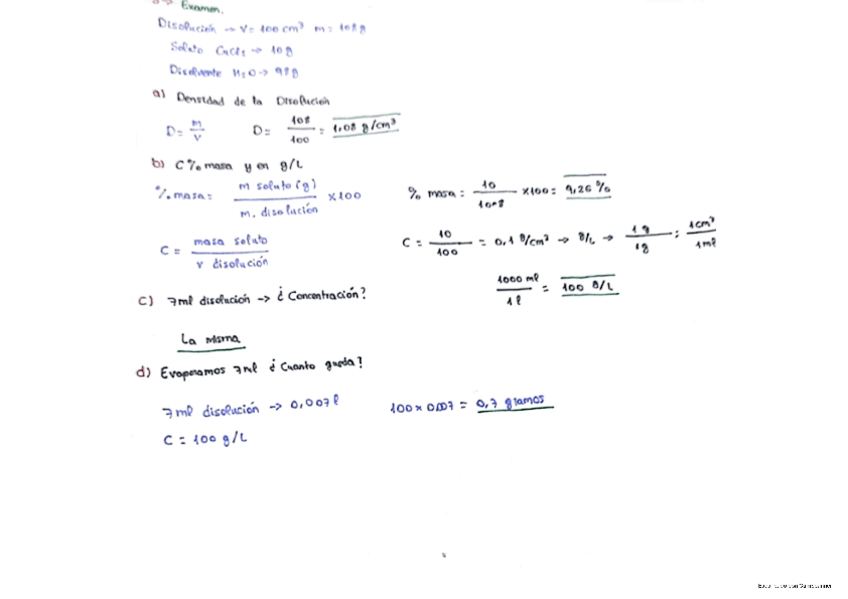 Examen.
Disolución -> V= 100 cm³ m= 108 g
Soluto CaCl₂ -> 10g
Disolvente H₂O -> 98g
a) Densidad de la Disolución
D= m/v D= 108/100 = 1,08 g/cm³
b) C % masa y en g/L
% masa= m soluto (g)/m. disolución x100 % masa: 10/108 x100= 9,26 %
C = masa soluto/v disolución C = 10/100 = 0,1 g/cm³ -> g/L -> 1g/1g : 1cm³/1ml
1000 ml/1l = 100 g/L
c) 7ml disolución -> ¿Concentración?
La misma
d) Evaporamos 7ml ¿Cuanto queda?
7ml disolución -> 0,007l 100 x 0,007 = 0,7 gramos
C = 100 g/L